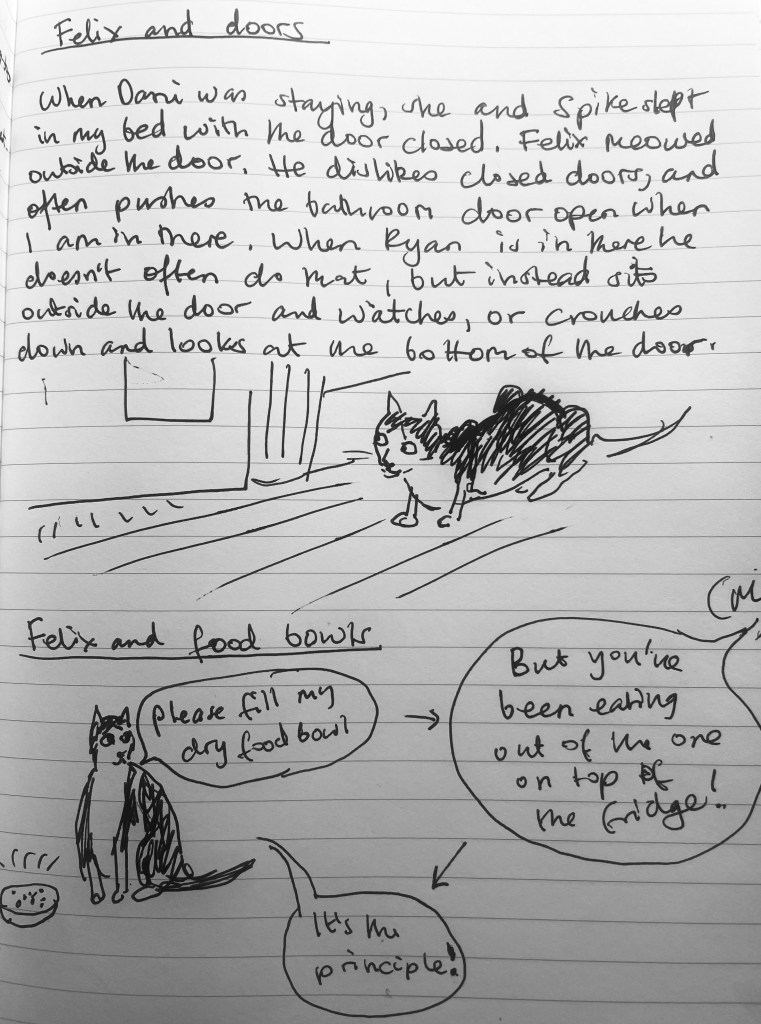 Felix and doors
When Dani was staying, she and Spike slept
in my bed with the door closed. Felix meowed
outside the door. He dislikes closed doors, and
often pushes the bathroom door open when
I am in there. When Ryan is in there he
doesn't often do that, but instead sits
outside the door and watches, or crouches
down and looks at the bottom of the door.
Felix and food bowls
please fill my
dry food bowl
But you've
been eating
out of the one
on top of
the fridge!
It's the
principle!